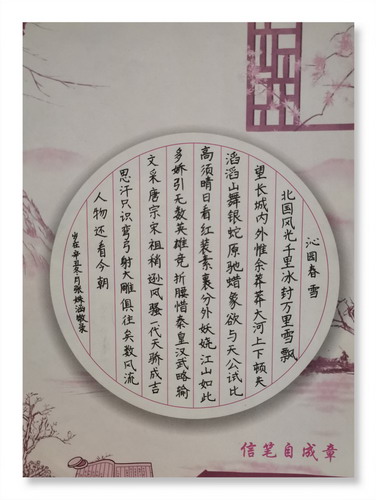 沁园春 雪
北国风光千里冰封万里雪飘
望长城内外惟余莽莽大河上下顿失
滔滔山舞银蛇原驰蜡象欲与天公试比
高须晴日看红装素裹分外妖娆江山如此
多娇引无数英雄竞折腰惜秦皇汉武略输
文采唐宗宋祖稍逊风骚一代天骄成吉
思汗只识弯弓射大雕俱往矣数风流
人物还看今朝
岁在辛丑冬月张姝涵敬录
信笔自成章